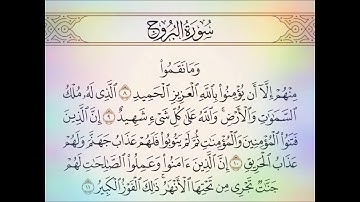 سُورَةُ البُرُوجِ
وَمَا نَقَمُوا۟
مِنْهُمْ إِلَّآ أَن يُؤْمِنُوا۟ بِٱللَّهِ ٱلْعَزِيزِ ٱلْحَمِيدِ ٨ ٱلَّذِى لَهُۥ مُلْكُ
ٱلسَّمَٰوَٰتِ وَٱلْأَرْضِ وَٱللَّهُ عَلَىٰ كُلِّ شَىْءٍ شَهِيدٌ ٩ إِنَّ ٱلَّذِينَ
فَتَنُوا۟ ٱلْمُؤْمِنِينَ وَٱلْمُؤْمِنَٰتِ ثُمَّ لَمْ يَتُوبُوا۟ فَلَهُمْ عَذَابُ جَهَنَّمَ وَلَهُمْ
عَذَابُ ٱلْحَرِيقِ ١٠ إِنَّ ٱلَّذِينَ ءَامَنُوا۟ وَعَمِلُوا۟ ٱلصَّٰلِحَٰتِ لَهُمْ
جَنَّٰتٌ تَجْرِى مِن تَحْتِهَا ٱلْأَنْهَٰرُ ذَٰلِكَ ٱلْفَوْزُ ٱلْكَبِيرُ ١١